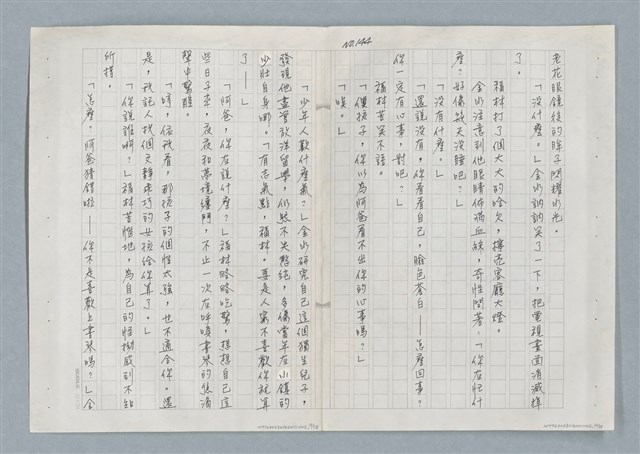 NO.144
老花眼鏡後的眸子閃耀水光。
「沒什麼。」金水訥訥笑了一下，把電視畫面消滅掉
了。
福林打了個大大的哈欠，擰亮客廳大燈。
金水注意到他眼睛佈滿血絲，奇怪問著。「你在忙什
麼？好像幾天沒睡吧？」
「沒有什麼。」
「還說沒有，你看看自己，臉色蒼白——怎麼回事？
你一定有心事，對吧？」
福林苦笑不語。
「傻孩子，你以為阿爸看不出你的心事嗎？」
「唉。」
「少年人歎什麼氣？」金水研究自己這個獨生兒子，
發現他盡管放洋留學，仍然不失整純，多像當年在小鎮的
少壯自身哪。「有志氣點，福林。要是人家不喜歡你就算
了——」
「阿爸，你在說什麼？」福林略略吃驚。想想自己這
些日子來，夜夜和夢境纏鬥，不止一次在呼喚書琴的焦渴
聲中驚醒。
「唷，依我看，那孩子的個性太強，也不適合你。還
是，我託人找個文靜乖巧的女孩給你算了。」
「你說誰啊？」福林苦惱地，為自己的怔忡感到不知
所措。
「怎麼？阿爸猜錯啦——你不是喜歡上書琴嗎？」金